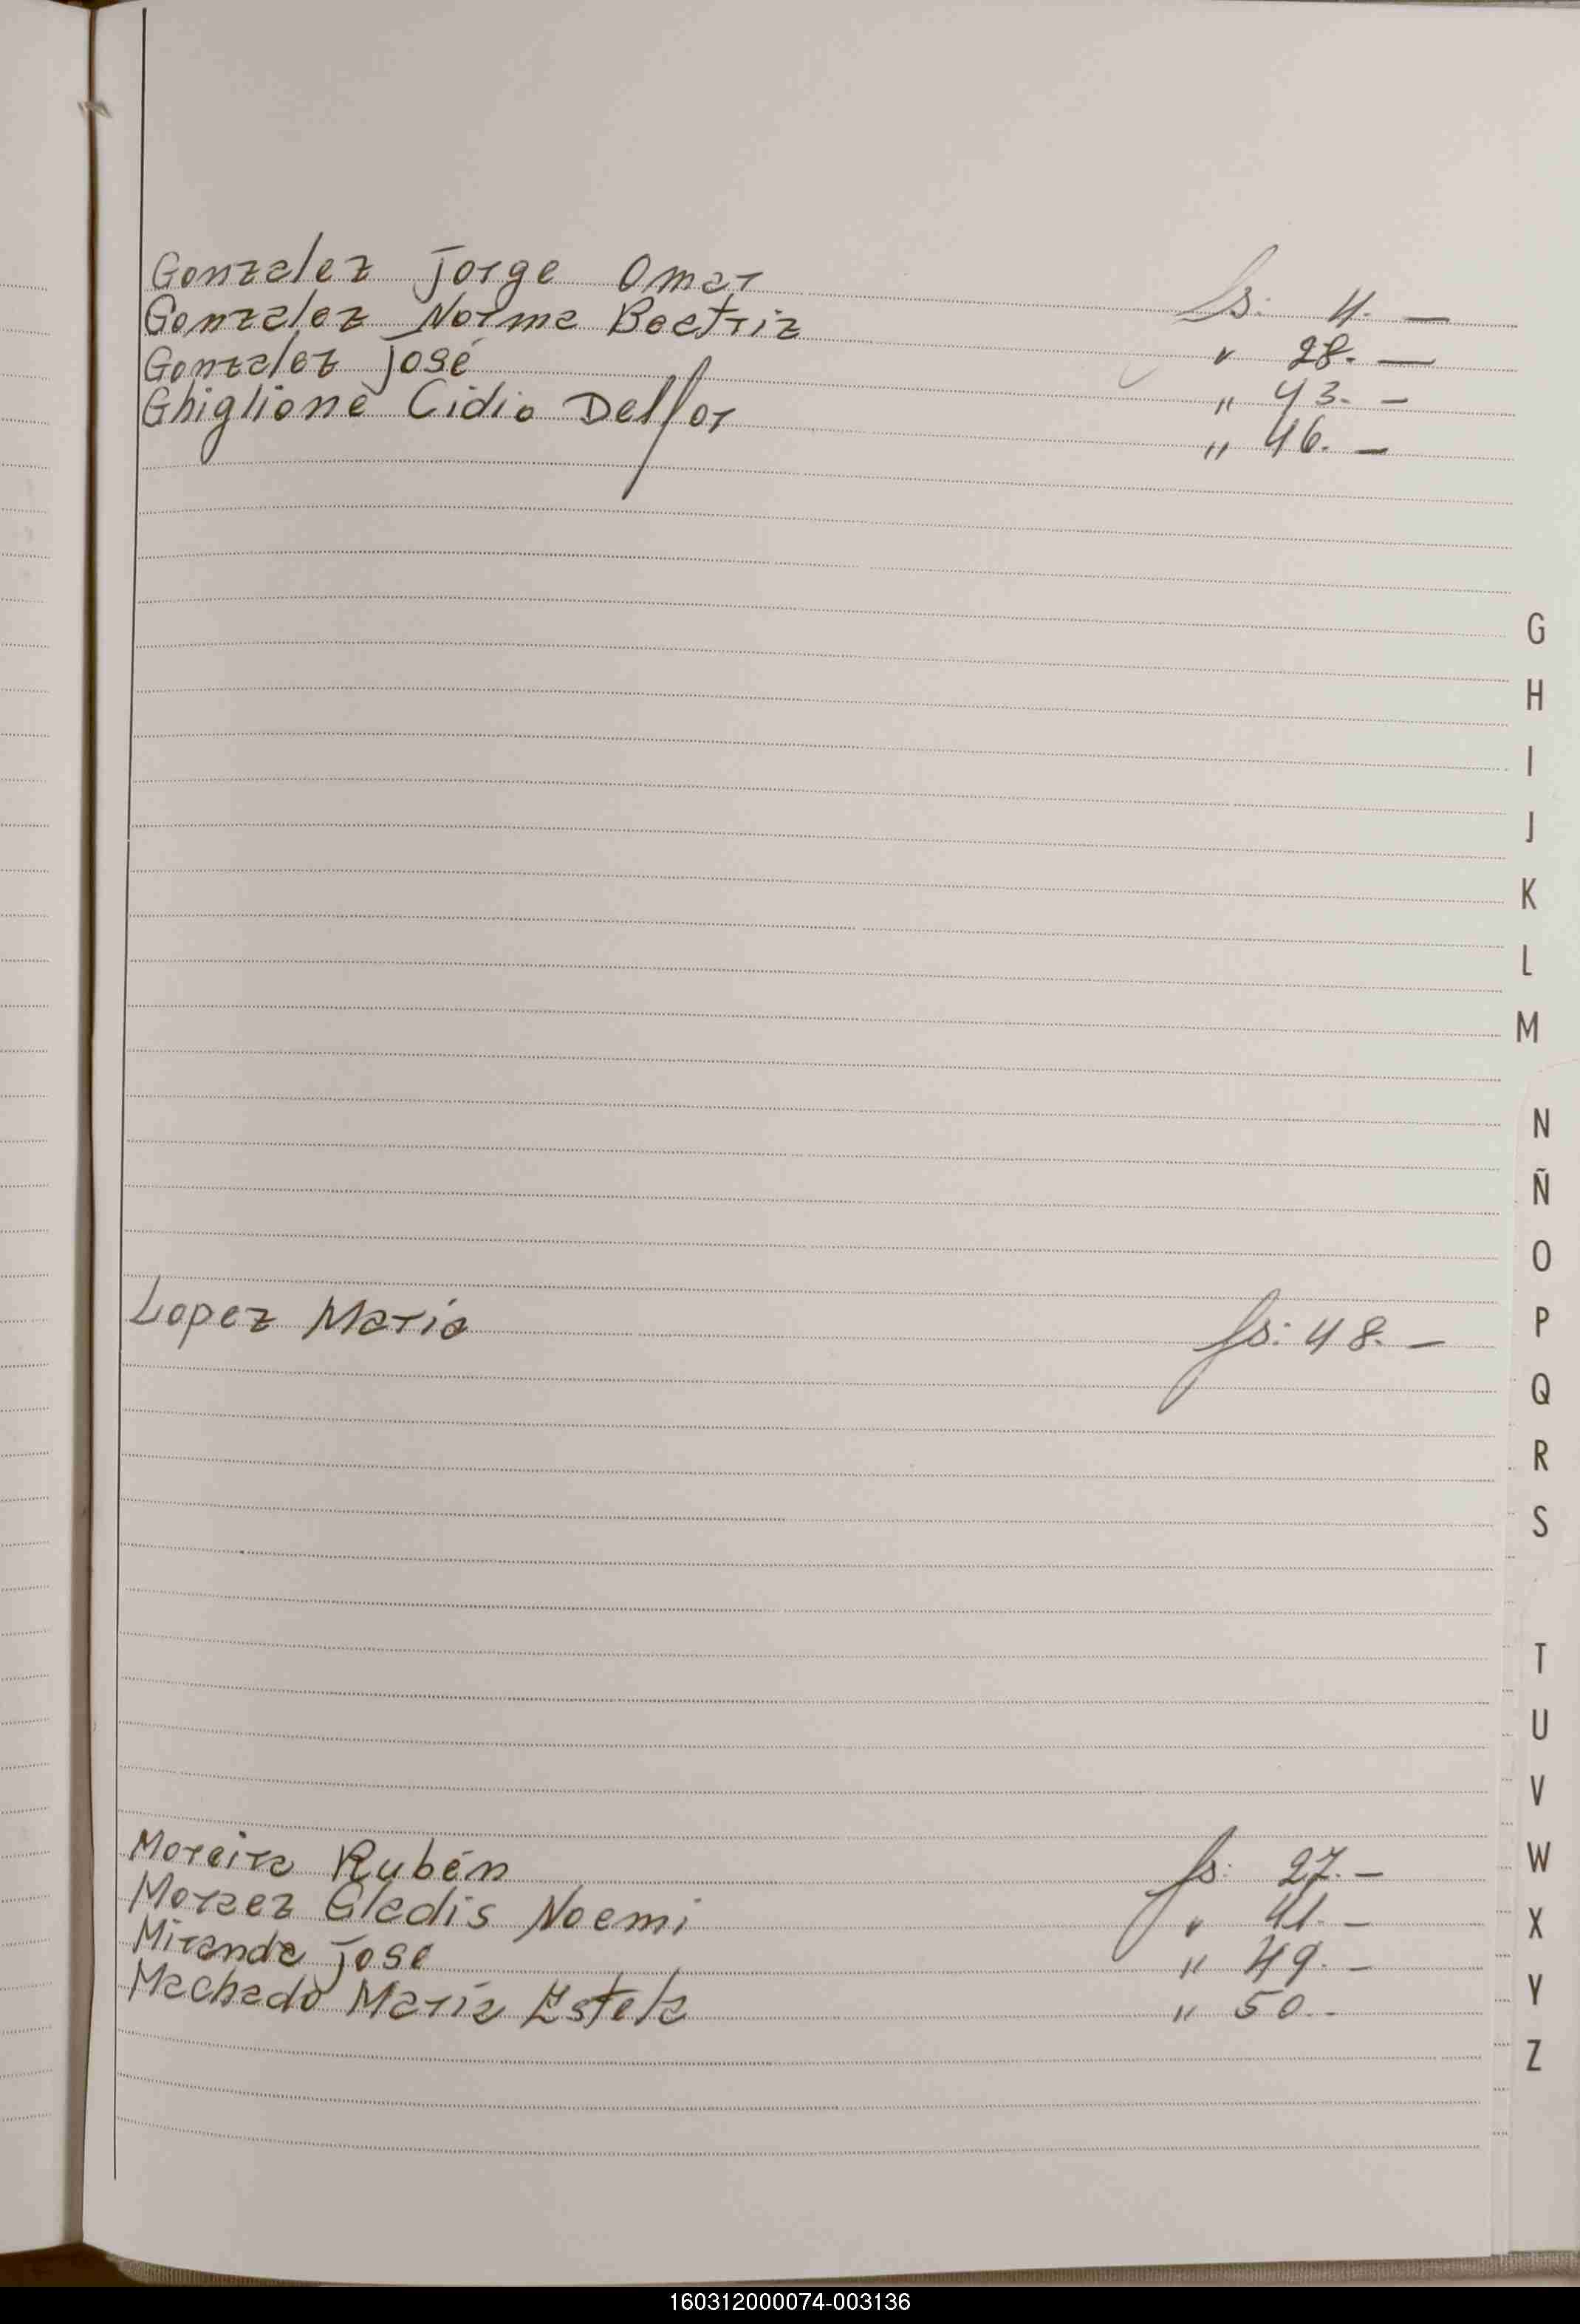 Gonzalez Jorge Omar fs: 4. —
Gonzalez Norma Beatriz " 28. —
Gonzalez José " 43. —
Ghiglione Cidio Delfor " 46. —
G
H
I
J
K
L
M
N
Ñ
O
Lopez Maria fs: 48. —
P
Q
R
S
T
U
V
Moreira Rubén fs: 27. —
W
Moraez Gladis Noemi " 41. —
X
Miranda Jose " 49. —
Machado María Estela " 50. -
Y
Z
160312000074-003136